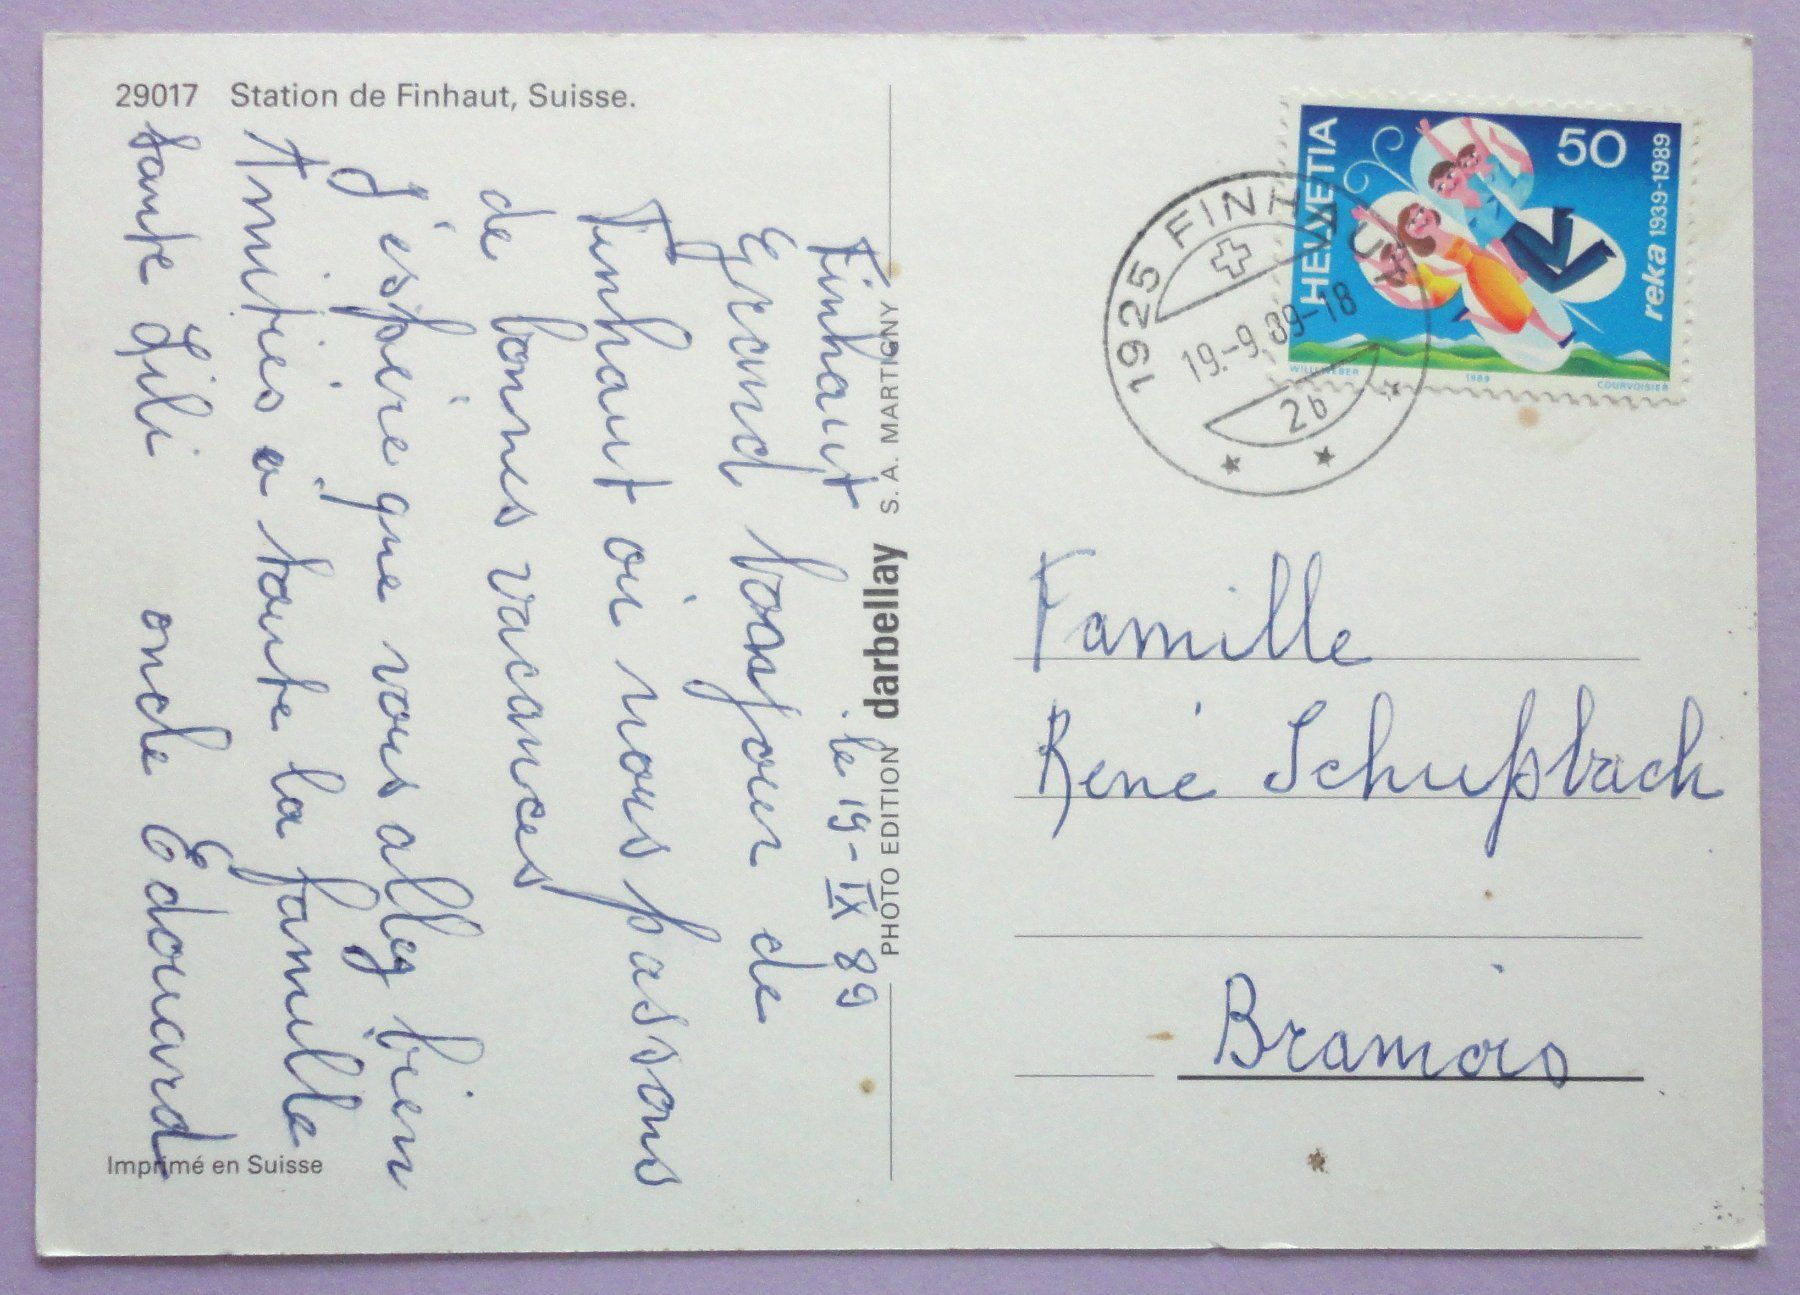 29017 Station de Finhaut, Suisse.
Finhaut le 19-IX 89
Grand bonjour de
Finhaut ou nous passons
de bonnes vacances
J'éspère que vous allez bien
Amitiés a toute la famille
tante Lili oncle Edouard
Imprimé en Suisse
PHOTO EDITION darbellay S. A. MARTIGNY
HELVETIA
50
reka 1939-1989
WILLI WEBER
1989
COURVOISIER
1925 FINHAUT
19.-9.89-18
2b
Famille
René Schußbach
Bramois